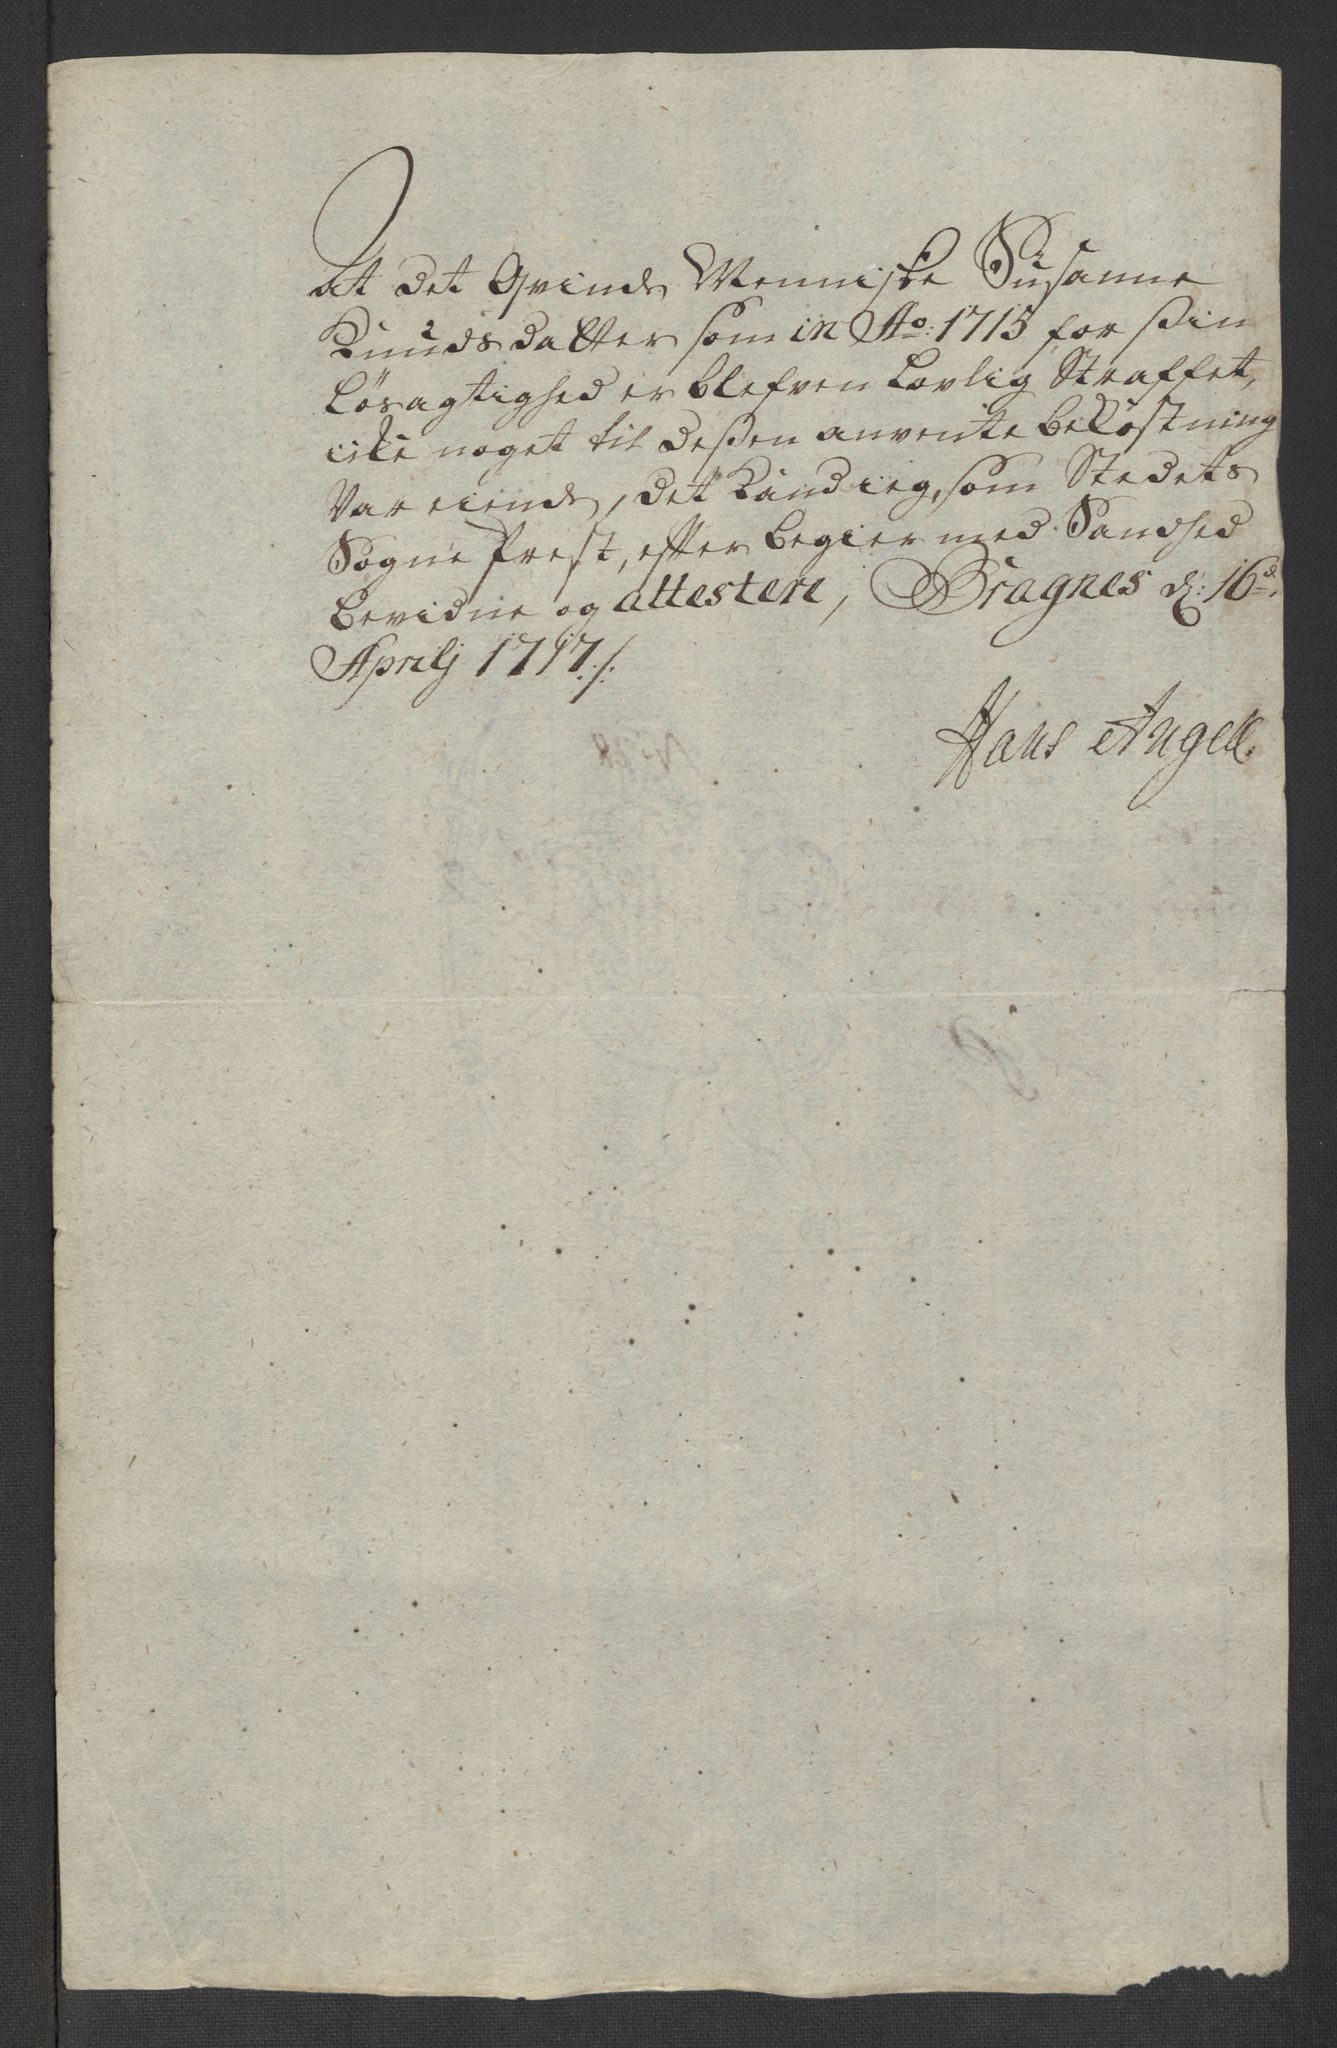 At det Qvinde Menniske Susanne
Knudsdatter som in Ao: 1715 for sin
Løsagtighed er blefven Lovlig Straffet,
icke noget til deßen anvente bekostning
Var eiende, det kand ieg, som Stedets
Sogne Prest, efter begier med Sandhed
bevidne og attestere, Bragnes d: 16de
Aprilj 1717 ./.
Hans Angell.